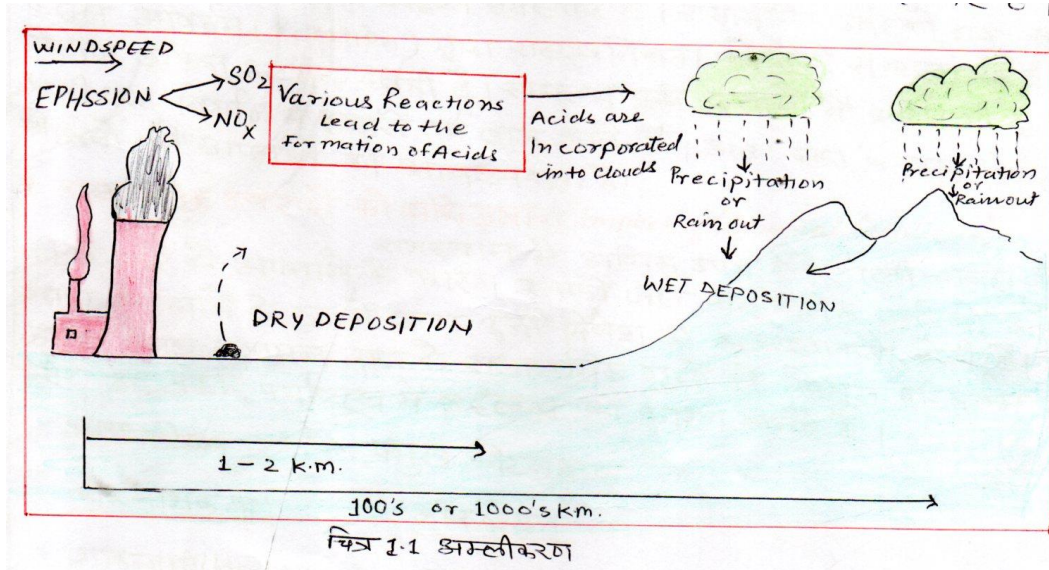 WINDSPEED
EPHSSION
SO2
NOx
Various Reactions
Lead to the
Formation of Acids
Acids are
Incorporated
into clouds
Precipitation
or
Rain out
Precipitation
or
Rain out
WET DEPOSITION
DRY DEPOSITION
1-2 K.m.
100's or 1000's Km.
चित्र 1.1 अम्लीकरण